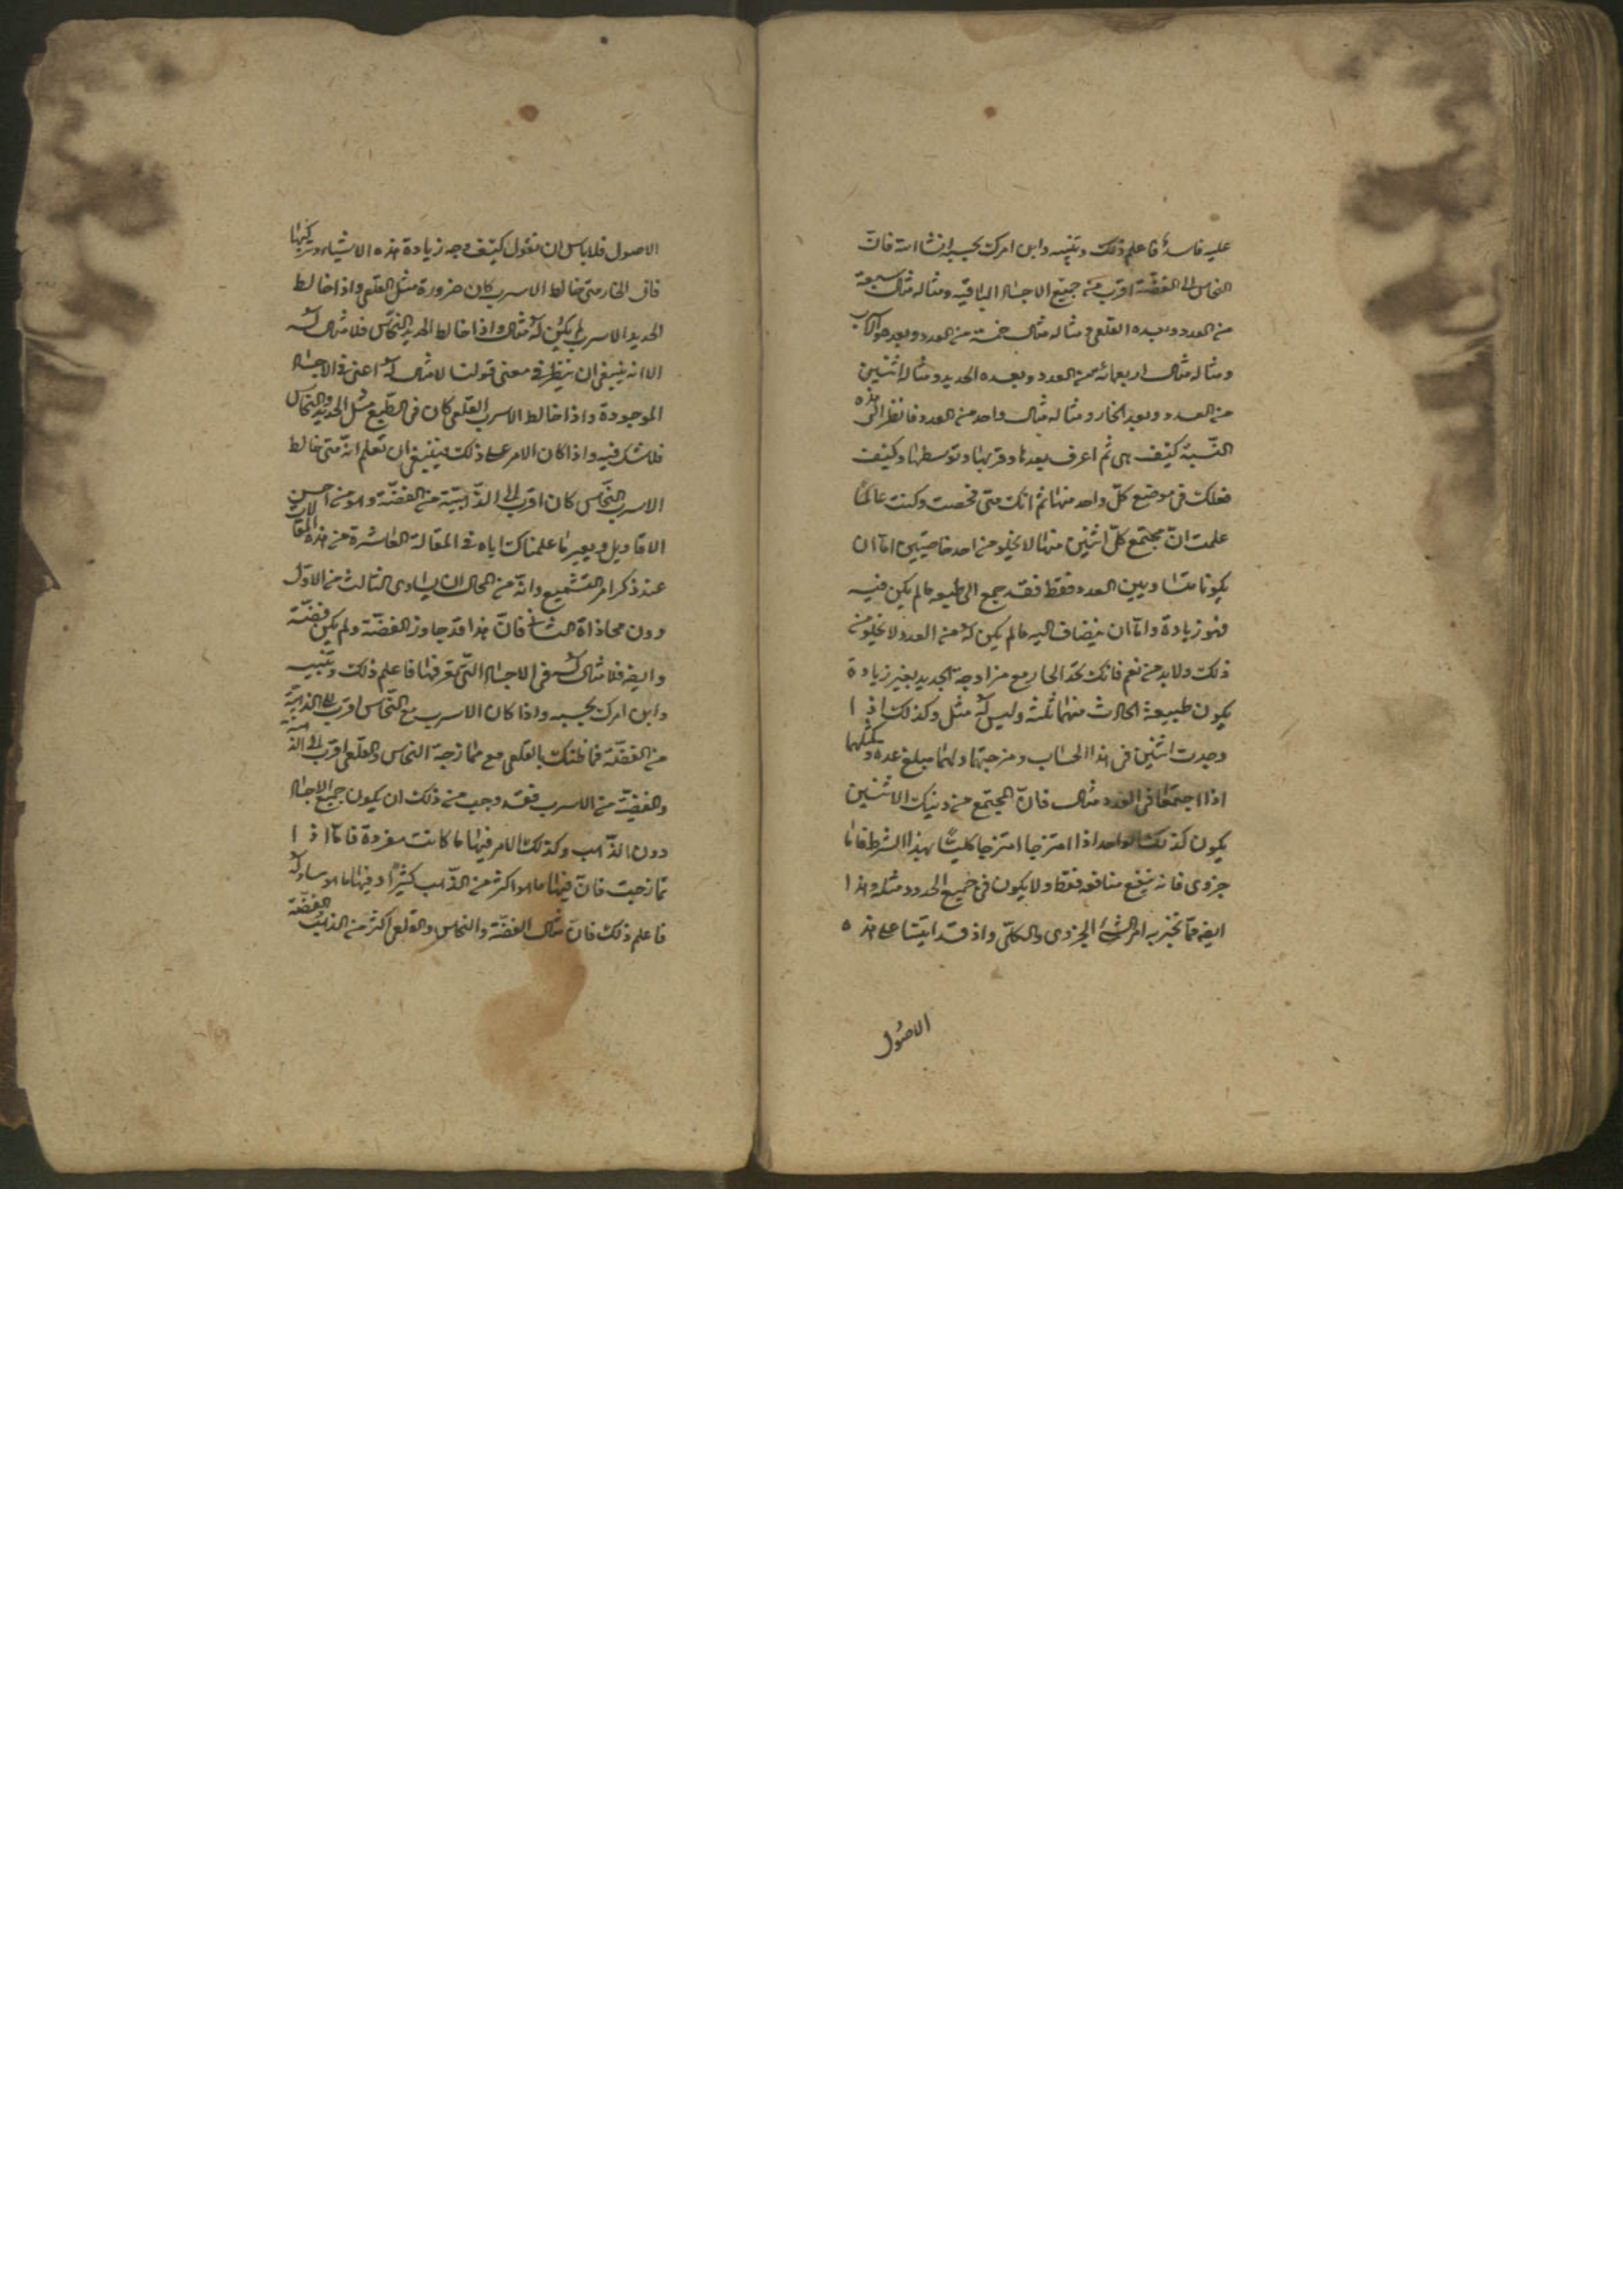 عليه فاسدة فاعلم ذلك وتبينه وابن امرك بحسبه انشا الله فانّ
النحاس الى الفضّة اقرب من جميع الاجساد الباقيه ومثاله مثال سبعة
من العدد وبعده القلعى ومثاله مثال خمسة من العدد وبعد هو الاسرب
ومثاله مثال اربعمائه من العدد وبعده الحديد ومثاله اثنين
من العدد وبعد الخار ومثاله مثال واحد من العدد فانظر الى هذه
النّسبة كيف هى ثم اعرف بعدها وقربها وتوسطها وكيف
فعلك فى موضع كلّ واحد منها ثم انّك متى فحصت وكنت عالمًا
علمت انّ مجتمع كلّ اثنين منها لا يخلو من احد خاصيّتين امّا ان
يكونا متساويين العدد فقط فقد جمع الى طبعه مالم يكن فيه
فهو زيادة وامّا ان ينضاف اليه مالم يكن له من العدد لا يخلو من
ذلك ولابد من نعم فانك تجد الخار مع مزاوجة الحديد بغير زيادة
يكون طبيعة الحادث منهما ثلثة وليس له مثل وكذلك اذا
وجدت اثنين فى هذا الحساب ومزجتها ولهما مبلغ عدد كمثلهما
اذا اجتمعا فى العدد مثال فانّ المجتمع من ذينك الاثنين
يكون كذلك الواحد اذا امتزجا امتزجا كليّا بهذا الشرط فاما
جزوى فانه ينفع منافعه فقط ولا يكون فى جميع الحدود مثله وهذا
ايضا ممّا تخبر به امر الشئ الجزوى والكلّى واذ قد اتينا على هذه
الاصول
الاصول فلا باس ان نقول كيف وجه زيادة هذه الاشياء وتركيبها
فانّ الخار متى خالط الاسرب كان ضرورة مثل القلعى واذا خالط
الحديد الاسرب لم يكن له مثال واذا خالط الحديد النحاس فلا مثال له
الا انه ينبغى ان ينظر فى معنى قولنا لا مثال له اعنى فى الاجساد
الموجودة واذا خالط الاسرب القلعى كان فى الطّبع مثل الحديد والنحاس
فلا شك فيه واذا كان الامر على ذلك فينبغى ان تعلم انّه متى خالط
الاسرب النّحاس كان اقرب الى الذّهبيّة من الفضّة وهو من احسن
الاقاويل وبعيرنا علمناك اياه فى المقالة العاشرة من هذه المقالات
عند ذكر امر التشميع وانّه من المحال ان يساوى الثالث من الاوّل
دون محاذاة الثانى فانّ هذا قد جاوز الفضّة ولم يكن فضّة
وايضا فلا مثال له فى الاجساد التى تعرفها فاعلم ذلك وتبينه
وابن امرك بحسبه واذا كان الاسرب مع النّحاس اقرب الى الذهبيّة
من الفضّة فما ظنّك بالقلعى مع ممازجة النحاس والقلعى اقرب الى الذهب منه
والفضّة من الاسرب فقد وجب من ذلك ان يكون جميع الاجساد
دون الذّهب وكذلك الامر فيها ما كانت مفردة فامّا اذا
تمازجت فانّ فيها ما هو اكثر من الذّهب كثيرًا وفيها ما هو مساو له
فاعلم ذلك فانّ مثال الفضّة والنحاس والقلعى اكثر من الذهب الفضّة